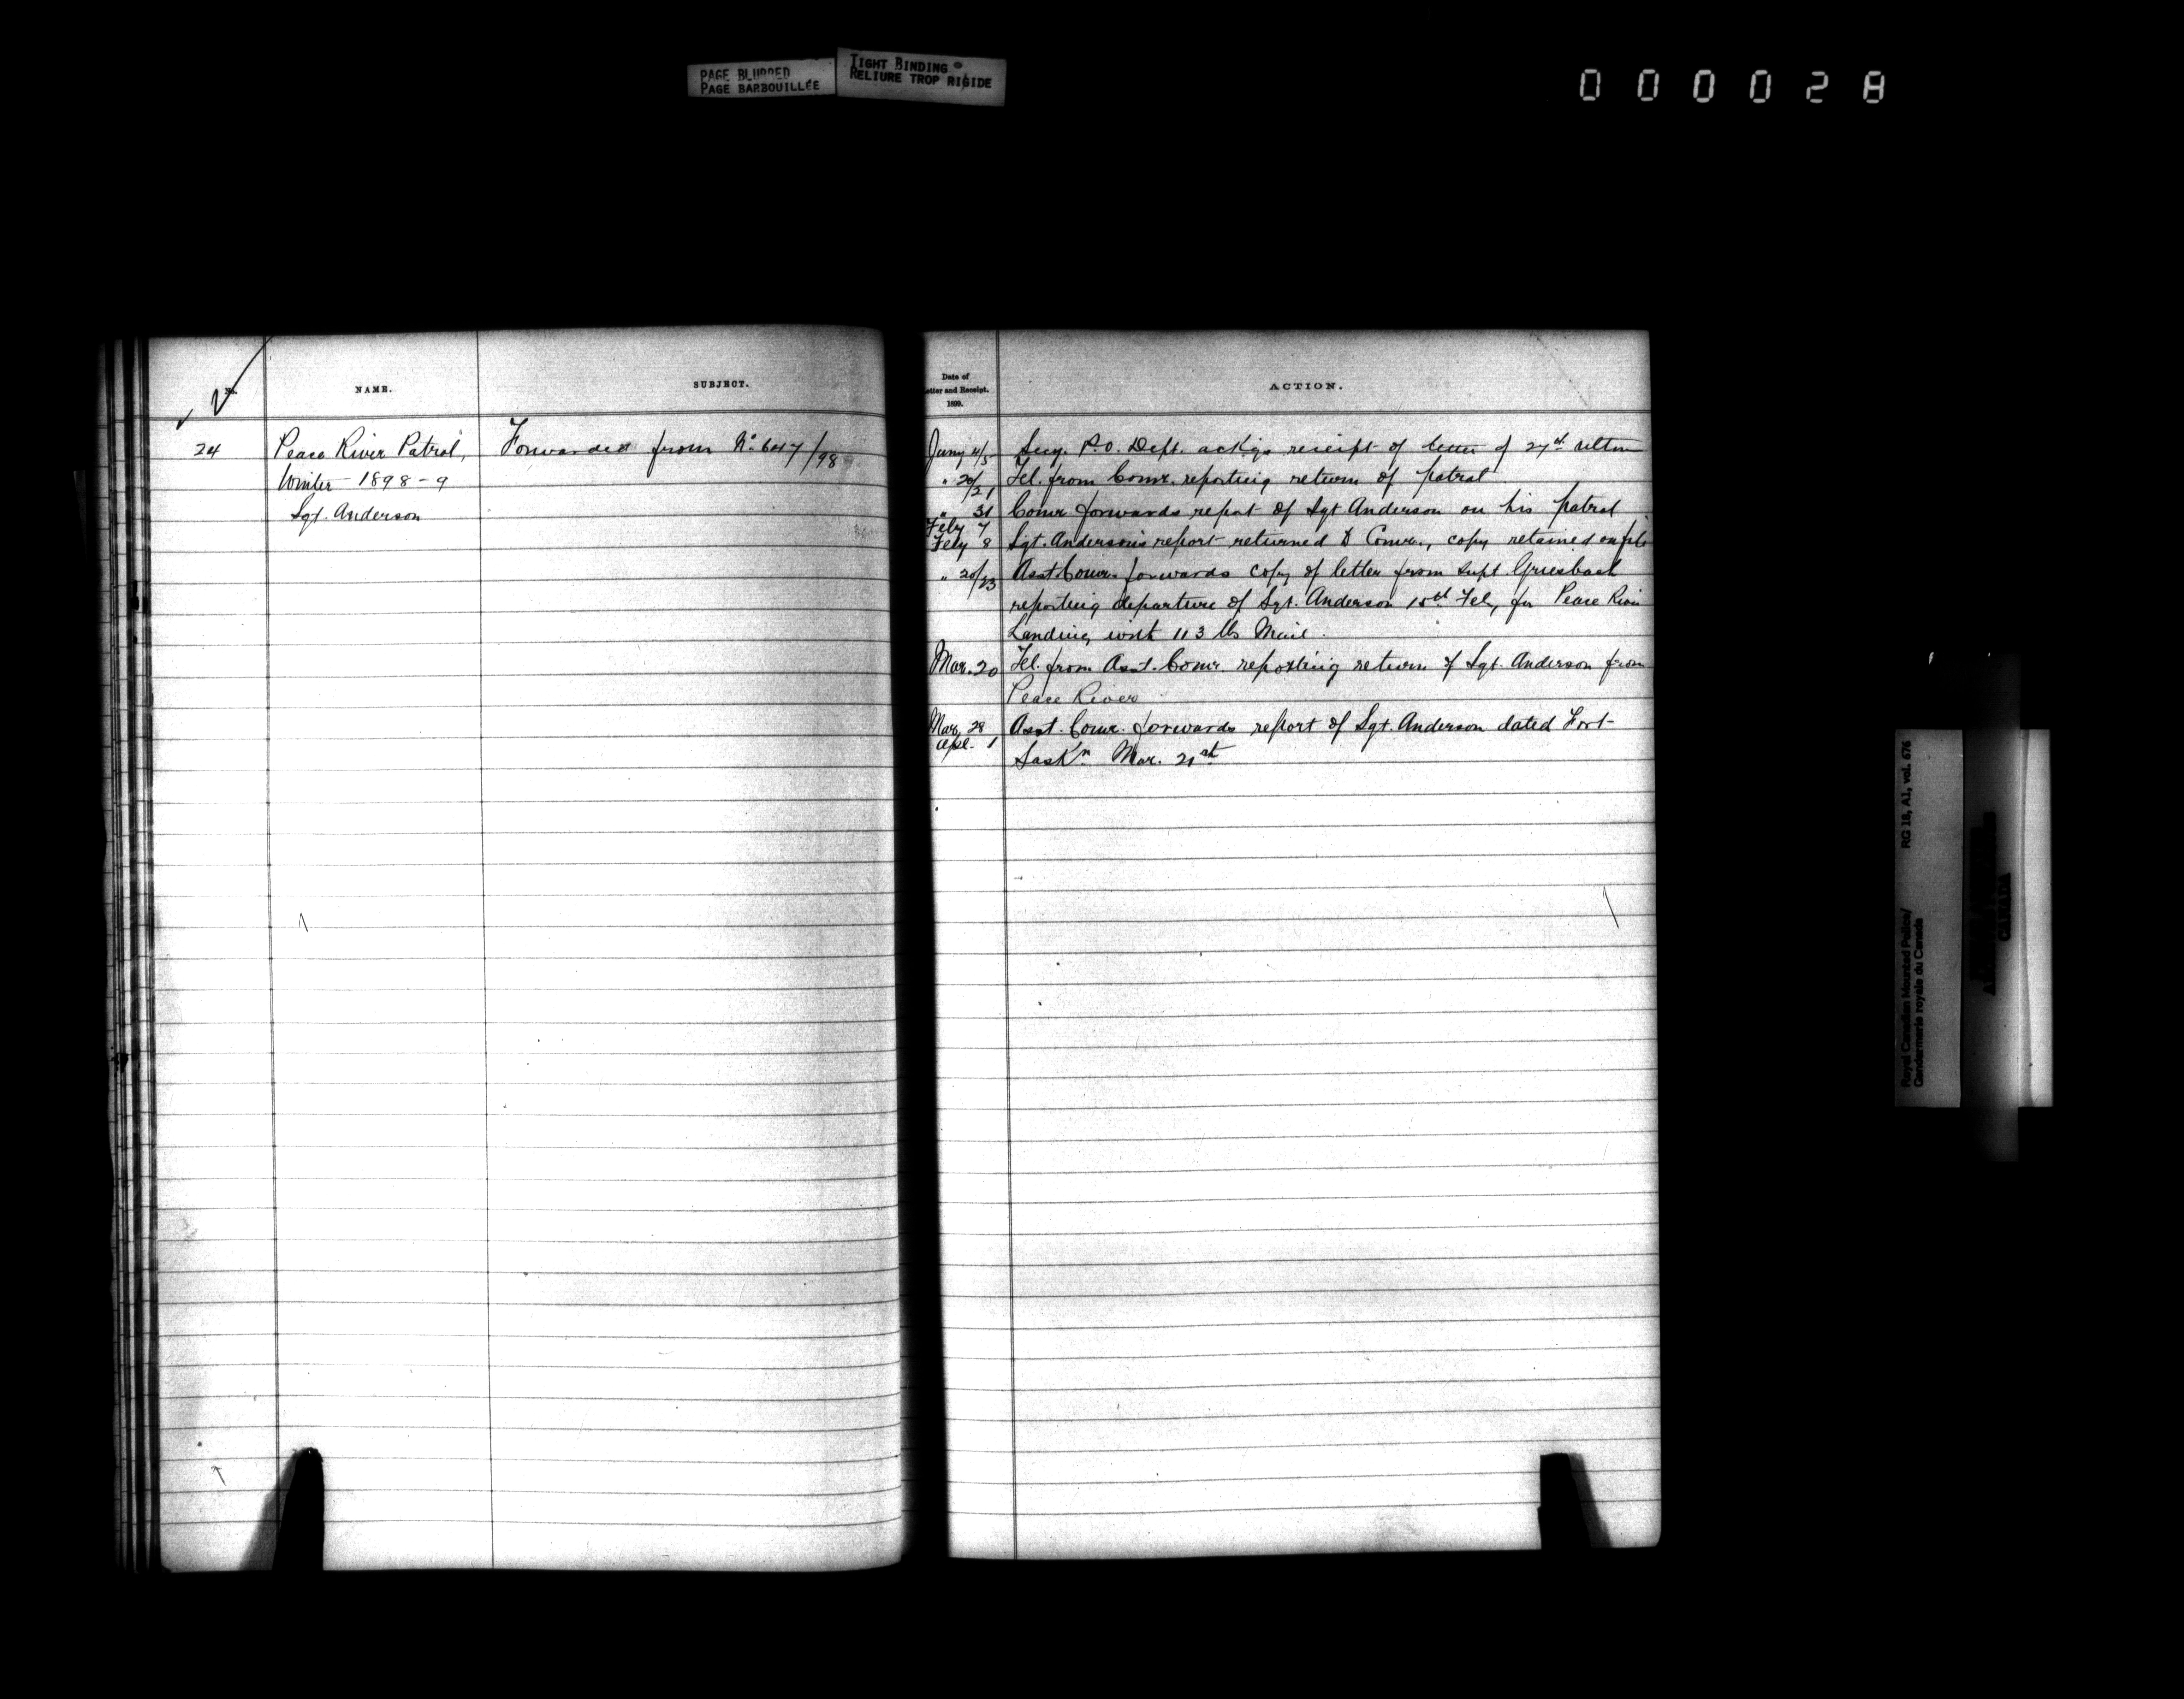 PAGE BLURRED
PAGE BARBOUILLÉE
TIGHT BINDING
RELIURE TROP RIGIDE
000028
No.
NAME.
SUBJECT.
24
Peace River Patrol,
Winter 1898-9
Sgt. Anderson
Forwarded from No. 647/98
Date of
etter and Receipt.
1899.
ACTION.
Jany 4/5 Secy. P.O. Dept. ackgs receipt of letter of 27th ultimo
" 20/21 Tel. from Comr. reporting return of patrol
" 31 Comr forwards report of Sgt Anderson on his patrol
Feby 7
Feby 8 Sgt. Anderson's report returned to Comr., copy retained on file
" 20/23 Asst Comr. forwards copy of letter from Supt. Griesbach
reporting departure of Sgt. Anderson 15th Feb, for Peace River
Landing with 113 lbs Mail.
Mar. 20 Tel. from Asst. Comr. reporting return of Sgt. Anderson from
Peace River
Mar. 28 Asst. Comr. forwards report of Sgt. Anderson dated Fort
Apl. 1 Saskn. Mar. 21st
Royal Canadian Mounted Police/
Gendarmerie royale du Canada
RG 18, A1, vol. 676
CANADA